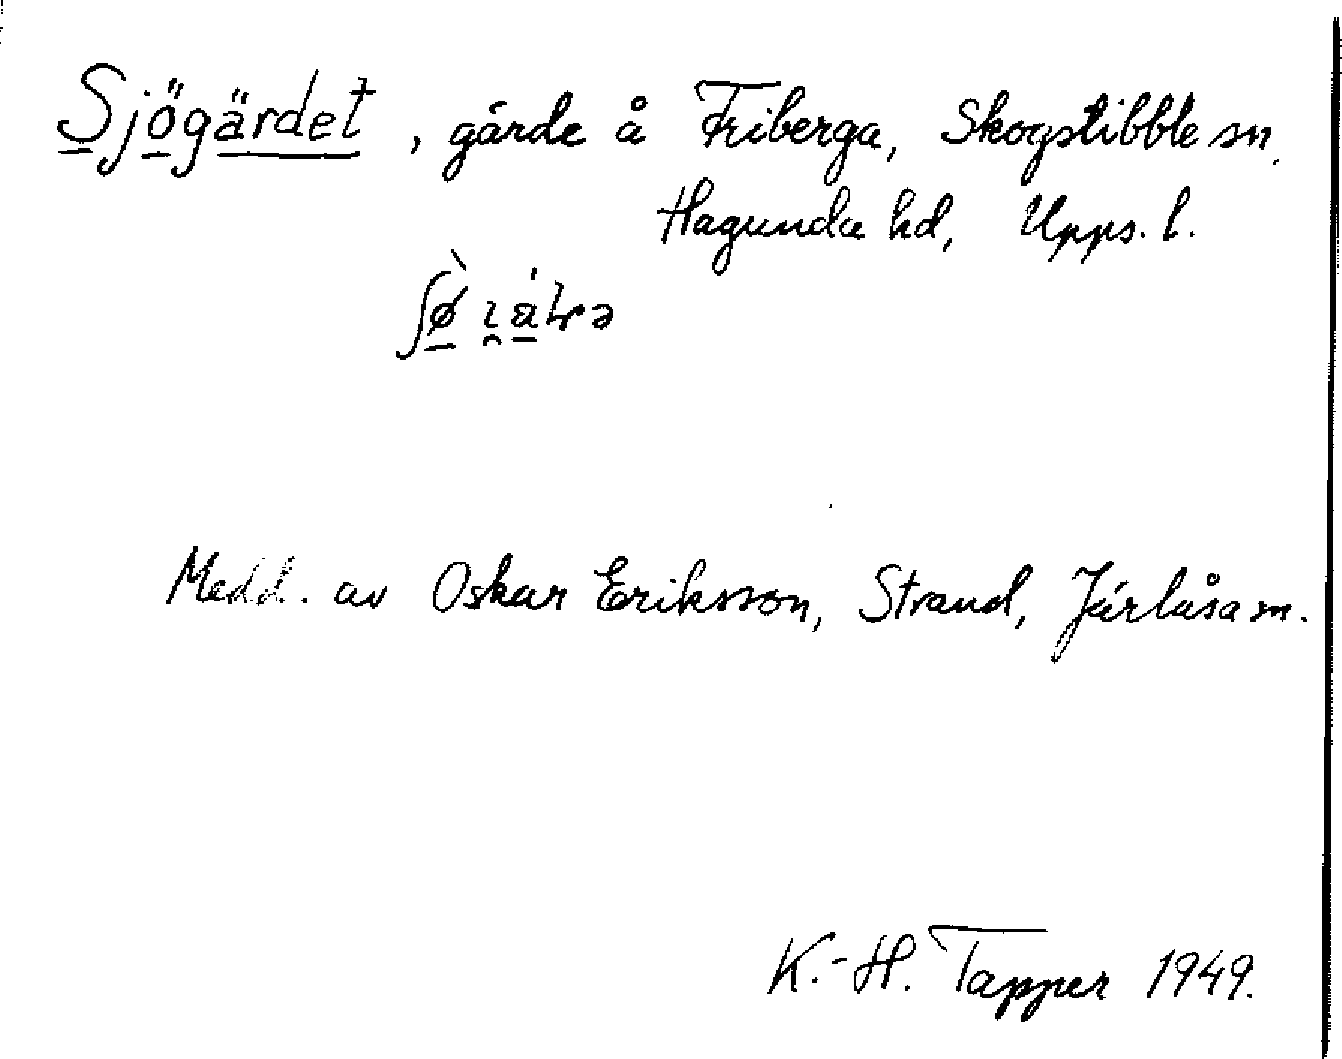 Sjögärdet, gärde å Friberga, Skogstibble sn.
Hagunda hd, Upps. l.
Medd. av Oskar Eriksson, Strand, Järlåsa sn.
K.-H. Tapper 1949.